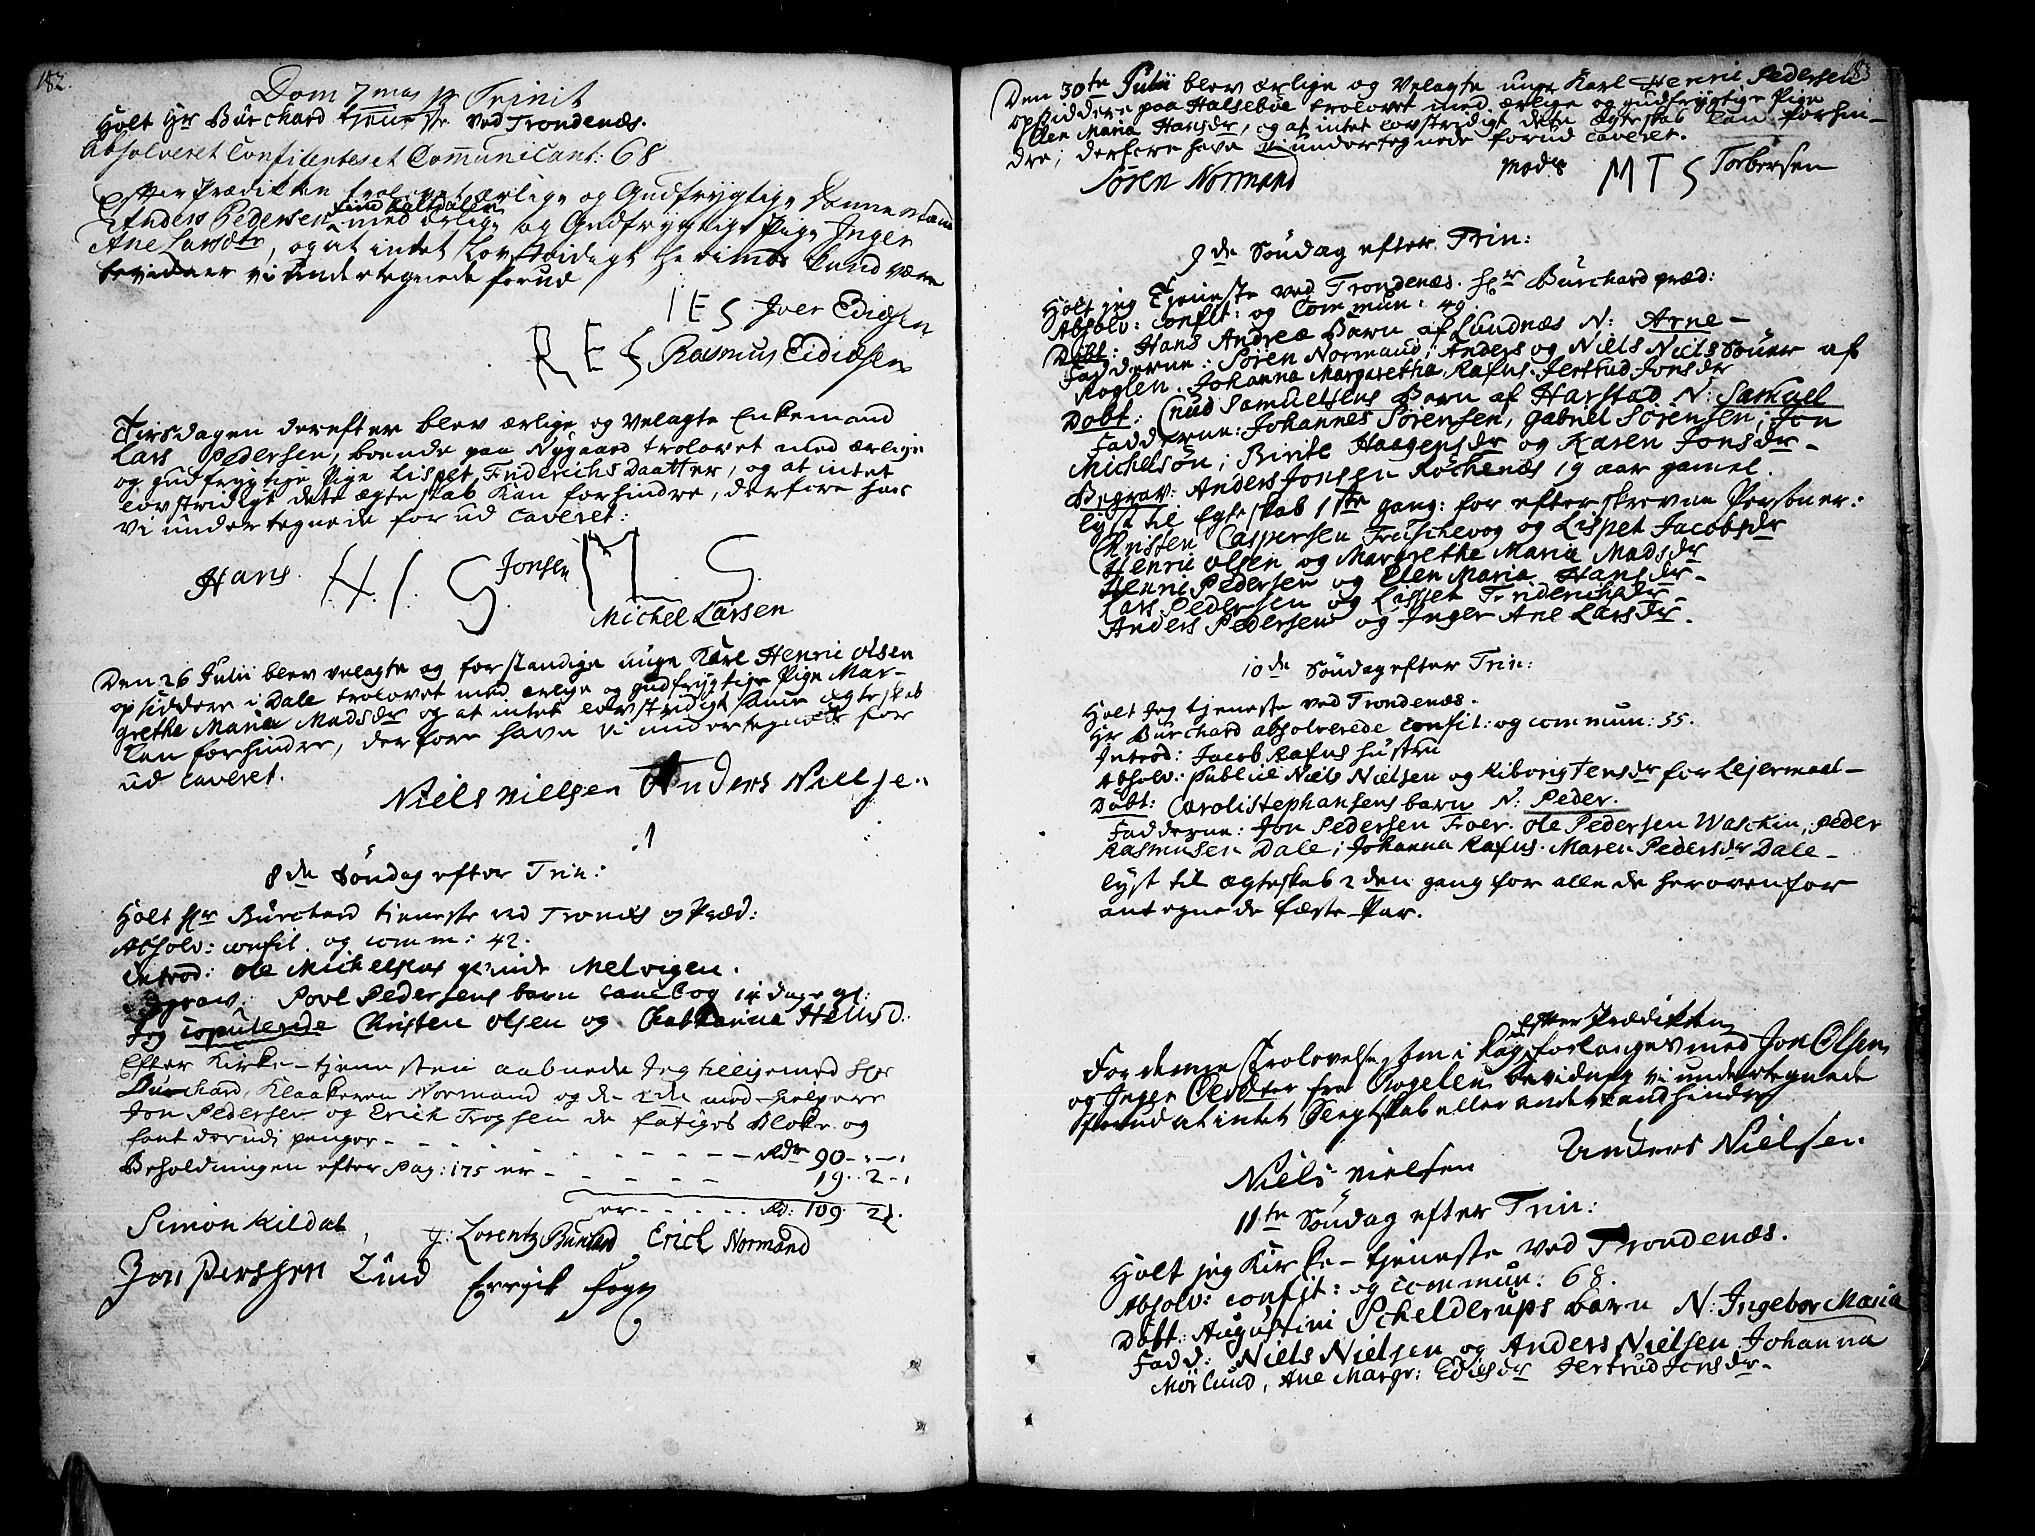 182.
Dom 7 mas p Trinit
Holt Hr Burchard tieneste ved Trondenæs.
Absolveret Confitentes et Communicant: 68
Efter Prædiken trolovet ærlige og Gudfrygtige
Anders Pedersen med ærlige og Gudfrygtige Pige Inger
Ane Larsdtr, og at intet Lovstridigt
bevidner vi undertegnede forud
I E S Joer Edisen
R E S Rasmus Eidiesen
Tirsdagen derefter blev ærlige og velagte Enkemand
Lars Pedersen, boende paa Nygaard trolovet med ærlige
og gudfrygtige Pige Lispet Friderichs Daatter, og at intet
lovstridigt dete ægteskab kan forhindre, derfore har
vi undertegnede forud caveret:
Hans H. I S Jonsen M. S.
Michel Larsen
Den 26 Julii blev velagte og forstandige unge Karl Henric Olsen
opsiddere i Dale trolovet med ærlige og gudfrygtige Pige Mar-
grethe Maria Madsdr og at intet lovstridigt samme ægteskab
kan forhindre, derfore have vi undertegnede for
ud caveret.
Niels Nielsen Anders Nielsen
8de Søndag efter Trin:
Holt Hr Burchard tjeneste ved Tronæs og Præd:
Absolv: confit. og comm: 42.
Introd: Ole Michelsens qvinde Melvigen.
Begrav: Povl Pedersens barn 14 dage gl:
Jeg copulerede Christen Olsen og Cathrina
Efter Kirke-tjenesten aabnede Jeg tillige med Hr
Burchard, Klaakeren Normand og de 2de med-hielpere
Jon Pedersen og Erich Trogsen de fatiges Blok og
fant derudi penger - - - - - Rdr 90 - " - "
Beholdningen efter pag: 175 er - - - - - 19.. 2 - "
er - - - - - Rd: 109. 2
Simon Kildal, J: Lorentz Burchard Erich Normand
Jon Perssen Lund Errick Sogn
183
Den 30te Julii blev ærlige og Velagte unge Karl Henric Pedersen
opsiddere paa Halsebøe trolovet med ærlige og gudfrygtige Pige
Ellen Maria Hansdr, og at intet lovstridigt dete ægteskab kan forhin-
dre, derfore have vi undertegnede forud caveret.
Søren Normand Mads M T S Torbersen
9de Søndag efter Trin:
Holt jeg Tjeneste ved Trondenæs. Hr Burchard præd:
Absolv: confit: og Commun: 49
Døbt: Hans Andreæ Barn af Lundnæs N: Arne -
Fadderne: Søren Normand, Anders og Niels Nielssøner af
Roglen. Johanna Margaretha Rafus. Jertrud Jonsdr
Døbt: Cnud Samuelsens Barn af Harstad N: Samuel
Fadderne: Johannes Sørensen, Gabriel Sørensen, Jon
Michelsøn, Birite Haagensdr og Karen Jonsdr -
Begrav: Anders Jonsen Rochenæs 19 aar gamel.
lyst til Egteskab 1ste gang: for efterskrevne Personer:
Christen Caspersen Truschevog og Lispet Jacobsdr
Henric Olsen og Margrethe Maria Madsdr
Henric Pedersen og Elen Maria Hansdr -
Lars Pedersen og Lisset Friderichsdr -
Anders Pedersen og Inger Ane Larsdr.
10de Søndag efter Trin:
Holt Jeg tjeneste ved Trondenæs.
Hr Burchard absolverede confit: og commun: 55.
Introd: Jacob Rafus hustru
Absolv: publice Niels Nielsen og Kiborigtensdr for Lejermaal -
Døbt: Caroli Stephansens barn N: Peder.
Fadderne: Jon Pedersen Froer. Ole Pedersen Waschin, Peder
Rasmusen Dale, Johanna Rafus. Maren Pedersdr Dale -
lyst til ægteskab 2den gang for alle de herovenfor
antegnede fæste-Par.
Efter Prædiken
For denne Trolovelse som i Dag forlanges med Jon Olsen
og Inger Olsdter fra Rogelen bevidner vi undertegnede
forud at intet Slegtskab eller andet kand hendre
Niels Nielsen Anders Nielsen
11te Søndag efter Trin:
Holt jeg Kirke-tjeneste ved Trondenæs.
Absolv: confit: og commun: 68.
Døbt: Augustini Schelderups barn N: Ingebor Maria
Fadd: Niels Nielsen og Anders Nielsen Johanna
Mørlund, Ane Margr: Edisdr Jertrud Jensdr -